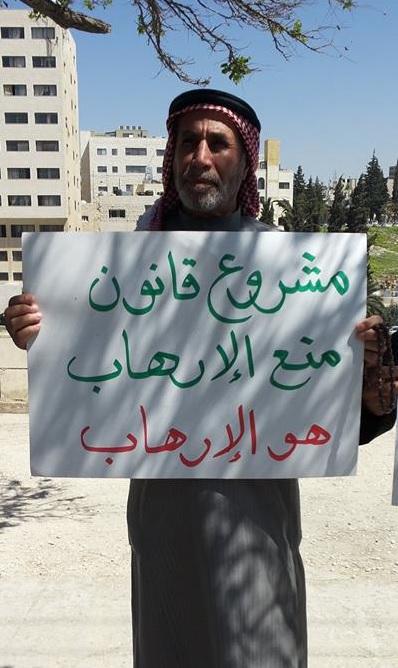 مشروع قانون
منع الإرهاب
هو الإرهاب